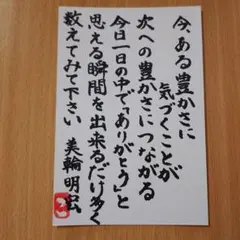 今、ある豊かさに
気づくことが
次への豊かさにつながる
今日一日の中で「ありがとう」と
思える瞬間を出来るだけ多く
数えてみて下さい 美輪明宏